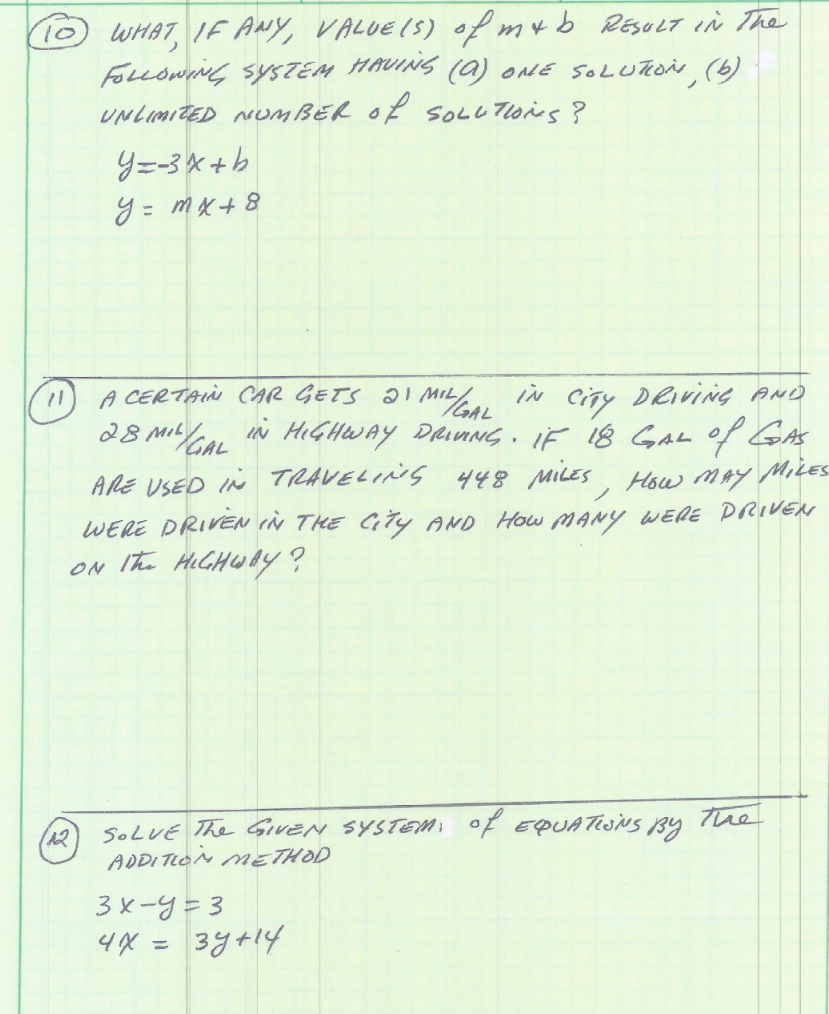 10 WHAT, IF ANY, VALUE(S) of m & b RESULT IN The
FOLLOWING SYSTEM HAVING (a) ONE SOLUTION, (b)
UNLIMITED NUMBER of SOLUTIONS?
y=-3x+b
y = mx+8
11 A CERTAIN CAR GETS 21 MIL/GAL IN CITY DRIVING AND
28 MIL/GAL IN HIGHWAY DRIVING. IF 18 GAL of GAS
ARE USED IN TRAVELING 448 MILES, HOW MAY MILES
WERE DRIVEN IN THE CITY AND HOW MANY WERE DRIVEN
ON The HIGHWAY?
12 SOLVE The GIVEN SYSTEM of EQUATIONS BY The
ADDITION METHOD
3x-y=3
4x = 3y+14